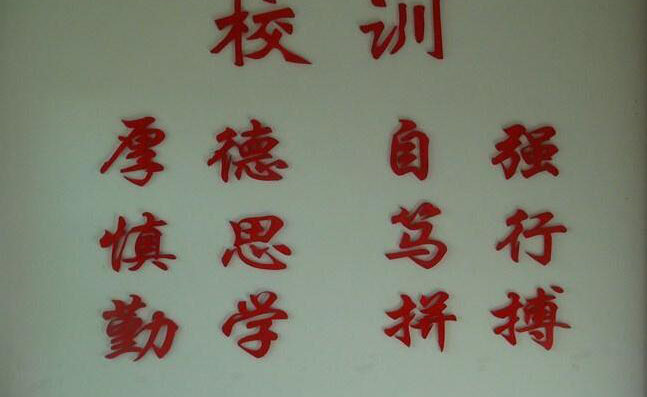 校训
厚德 自强
慎思 笃行
勤学 拼搏